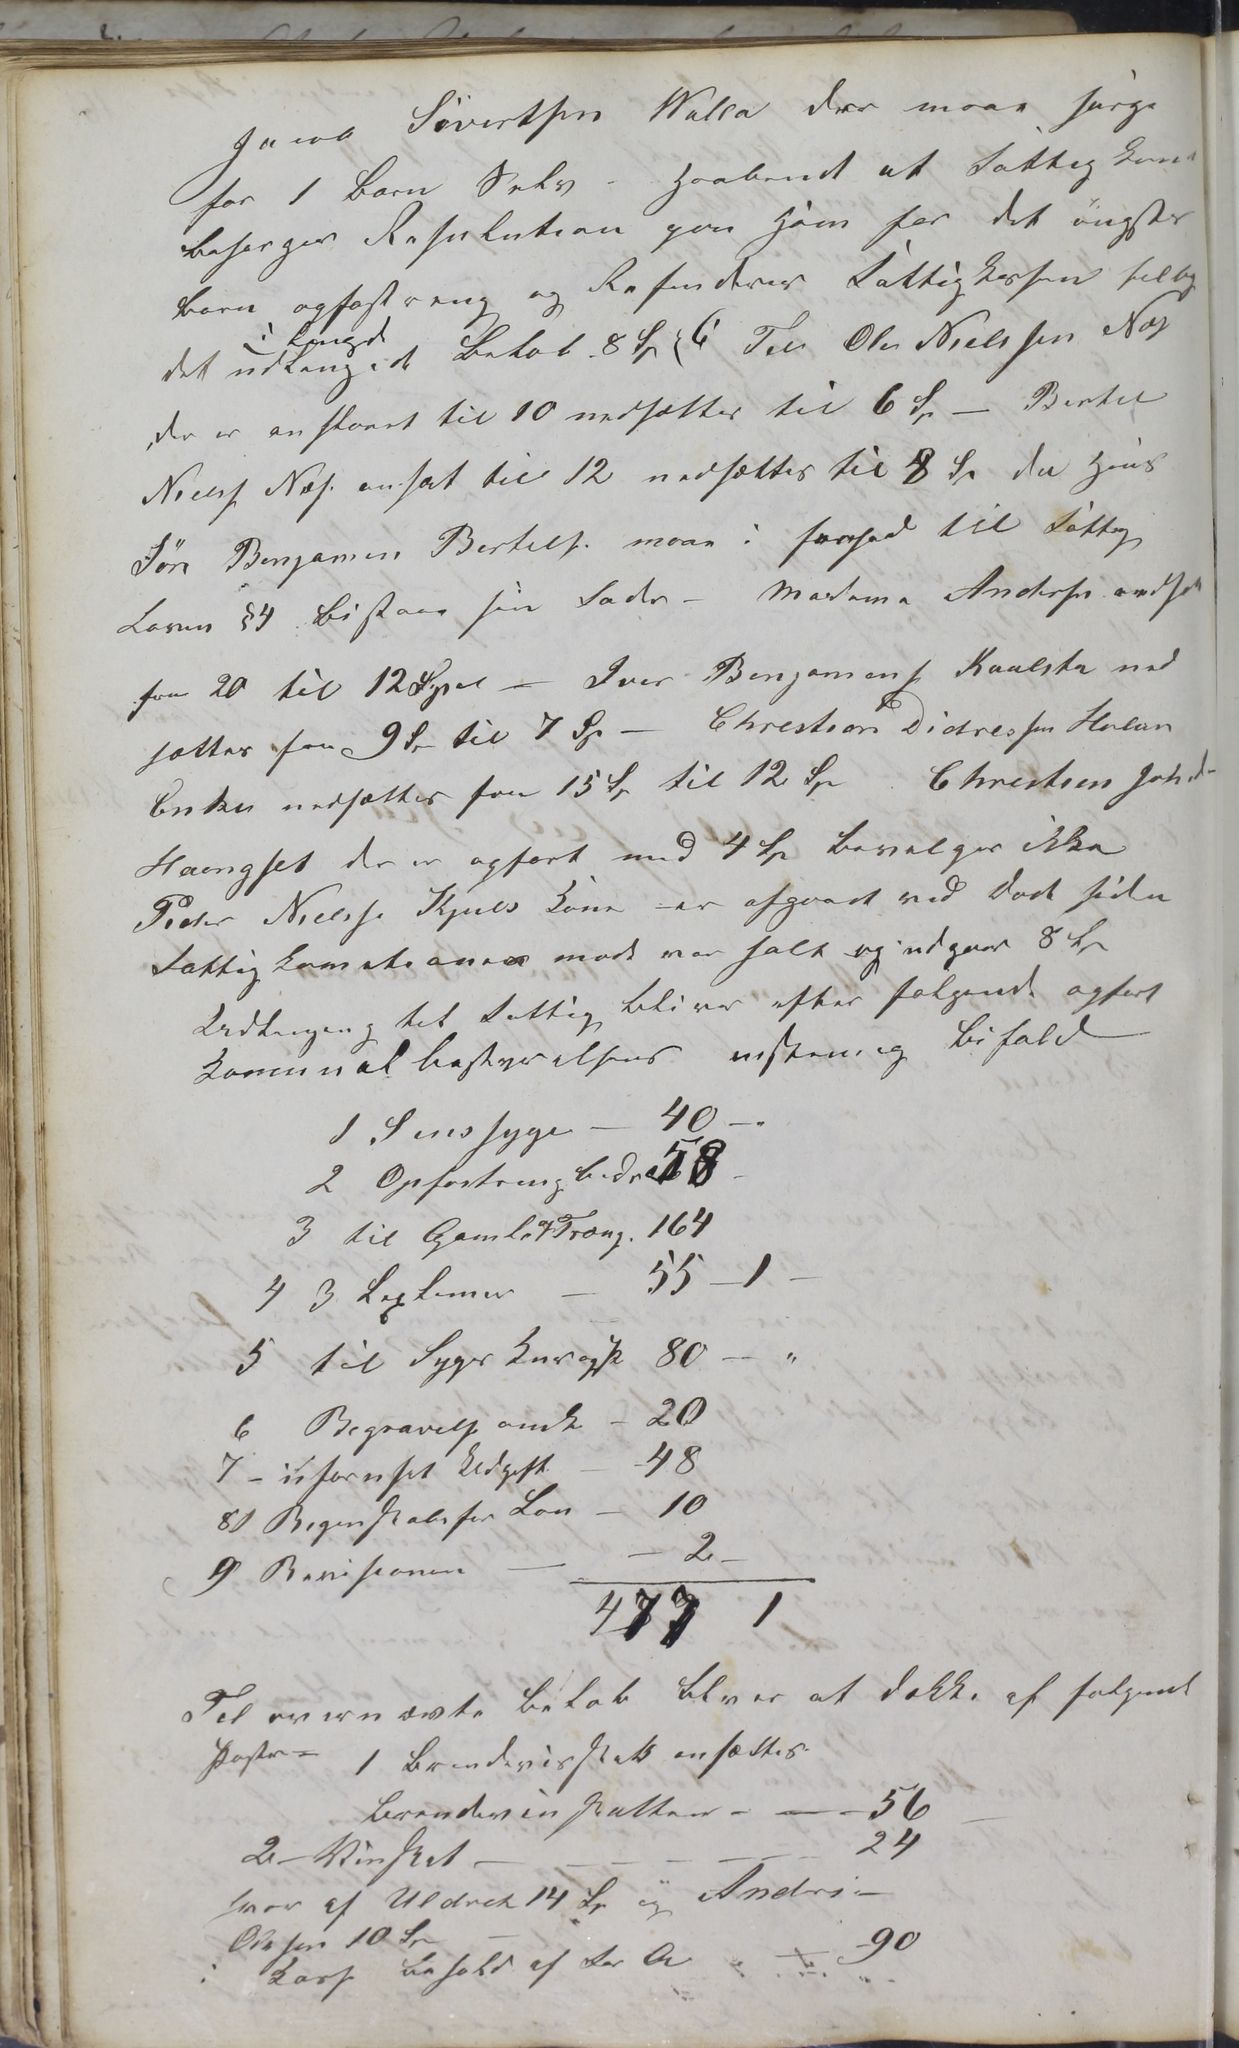 Jacob Sivertsen Walla der maae sørge
for 1 Barn Selv - Haabend at Fattig kom
besørger Resolution paa Ham for det yngste
Barn opfostreng og Refunderer Fattigkassen
i Længd
det udlangede Beløb 8 Sp Til Ole Nielssen Næs
der er anført til 10 nedsættes til 6 Sp — Bertel
Niels Næs ansat til 12 nedsættes til 8 Sp da Hans
Sön Benjamin Bertels. maae i henhold til Fattig
Loven §4 bistaae sin Fader - Madame Anders nedsæt
fra 20 til 12 Spd — Iver Benjamins Kaalsta ned
sættes fra 9 Sp til 7 Sp — Christian Didressen Holan
Enke nedsættes fra 15 Sp til 12 Sp Christian Joh
Haengset der er opført med 4 Sp bevelges ikke
Peder Niels Kjuls Kone er afgaaet ved Død siden
Fattigkomisionens møde var halt og udgaar 8 Sp
Udlægning til Fattig bliver efter følgende opført
Komunalbestyrelsens enstemig bifald
1 Sinssyge — 40 —
2 Opfostringbidra 58 -
3 til Gamle & Træng. 164
4 3 Leglemer — 55 — 1 —
5 til Syges Kur og 80 — "
6 Begravels omk - 20
7 - uforuset Udgift — 48
8 Regenskabsfør Løn — 10
9 Revisionen — — 2 -
477 1
Til ovennævte Beløb bliver at dække af følgend
Poster = 1 Brendevinskatt ansættes
Brendevinskatten - — - 56 —
2 - Vinskat — — — — 24
hvor af Uldrek 14 Sp og Andri-
Olsen 10 Sp —
i Kass behold af for A — 90